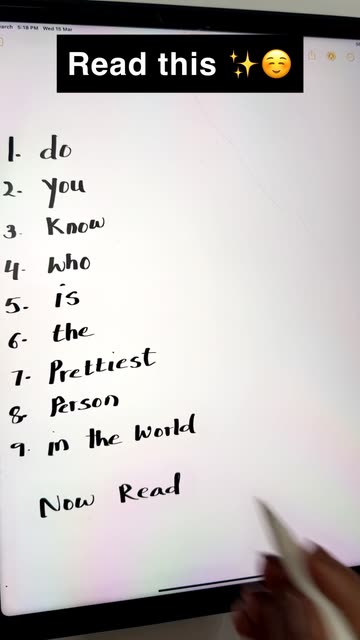 5:18 PM Wed 15 Mar
Read this ✨☺️
1. do
2- you
3. Know
4. who
5- is
6- the
7- Prettiest
8- Person
9. in the World
Now Read